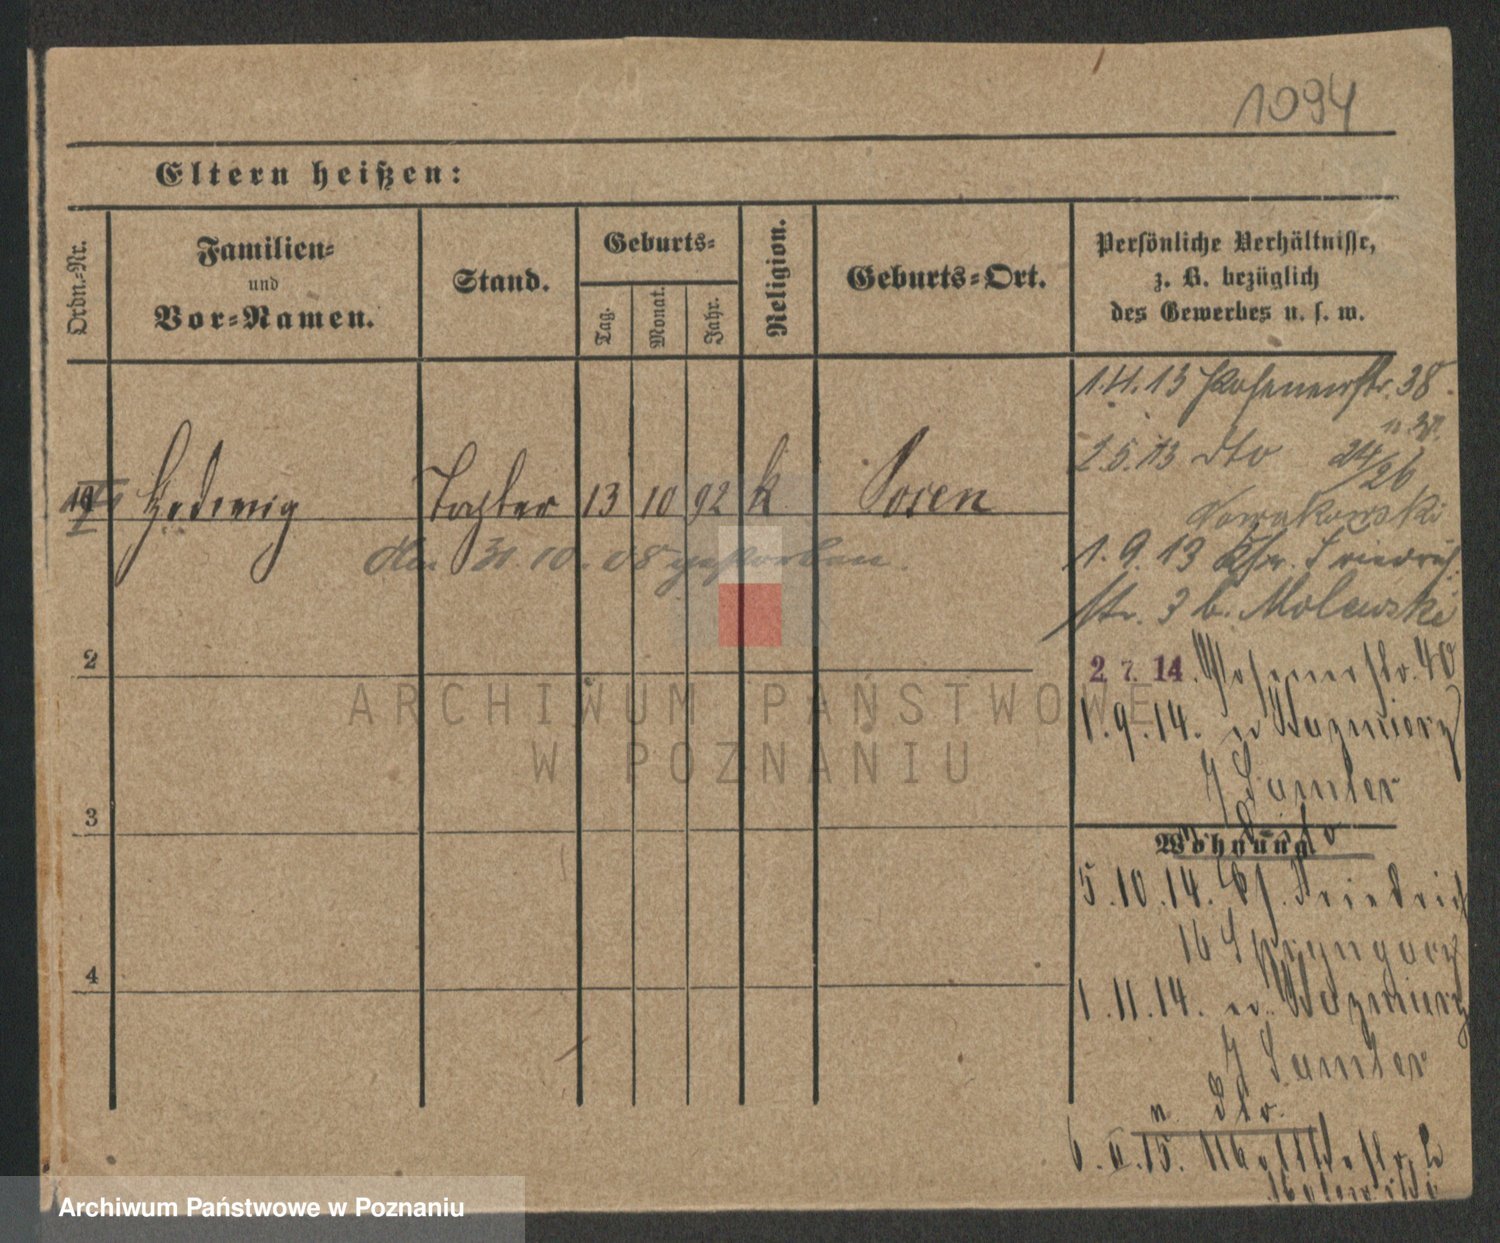 1094
Eltern heißen:
Ordn.-Nr.
Familien-
und
Vor-Namen.
Stand.
Geburts-
Tag.
Monat.
Jahr.
Religion.
Geburts-Ort.
Persönliche Verhältnisse,
z. B. bezüglich
des Gewerbes u. s. w.
1.4.13 Posenerstr. 38.
2.5.13 dto 24/26
Nowakowski
Hedwig Tochter 13 10 92 k. Posen
den 31.10.08 gestorben.
1.9.13 Friedrich
str. 3 b. Molewski
2
2 7. 14. Posenerstr. 40
1.9.14. n Kazmierz
Samter
3
dto
Wohnung
5.10.14. Friedrich
16
1.11.14. n. Kazmierz
Samter
4
n. dto.
6. II. 15.
ARCHIWUM PAŃSTWOWE
W POZNANIU
Archiwum Państwowe w Poznaniu